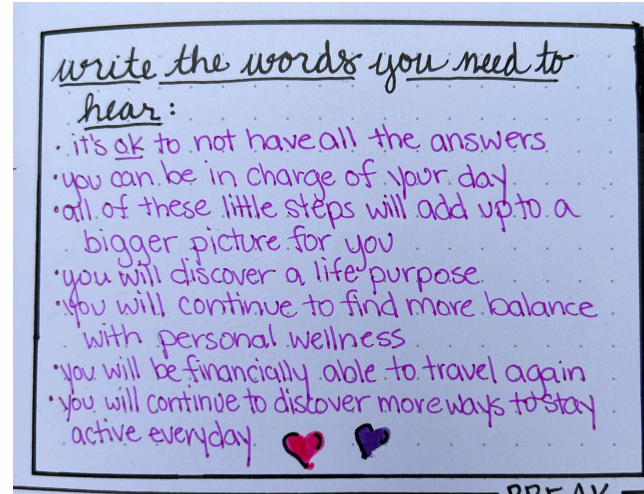 write the words you need to
hear:
• it's ok to not have all the answers
• you can be in charge of your day
• all of these little steps will add up to a
bigger picture for you
• you will discover a life purpose
• you will continue to find more balance
with personal wellness
• you will be financially able to travel again
• you will continue to discover more ways to stay
active everyday
BREAK